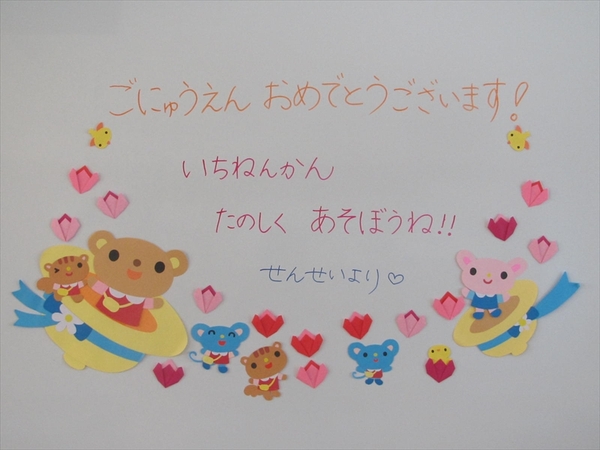 ごにゅうえん おめでとうございます!
いちねんかん
たのしく あそぼうね!!
せんせいより♡